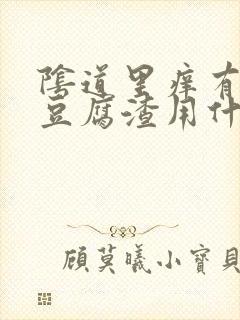 陰道里痒有
豆腐渣用什
顾莫曦小寶貝